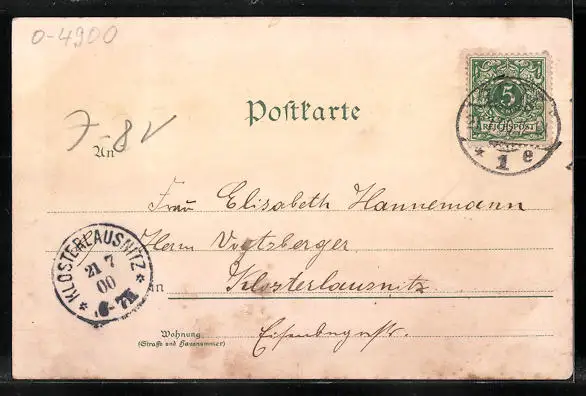 0-4900
5
REICHSPOST
* 1 e
Postkarte
7-8V
An
Frau Elisabeth Hannemann
Herrn Vogtzberger
KLOSTERLAUSNITZ
21 7
00
in Klosterlausnitz
Wohnung
(Straße und Hausnummer)